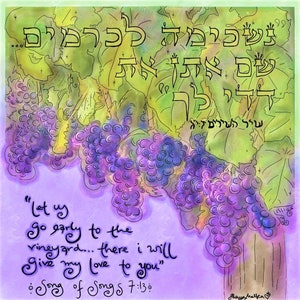 נשכימה לכרמים...
שם אתן את
דדי לך"
שיר השירים ז:יג
"Let us
go early to the
vineyard... there i will
give my love to you"
Song of Songs 7:13